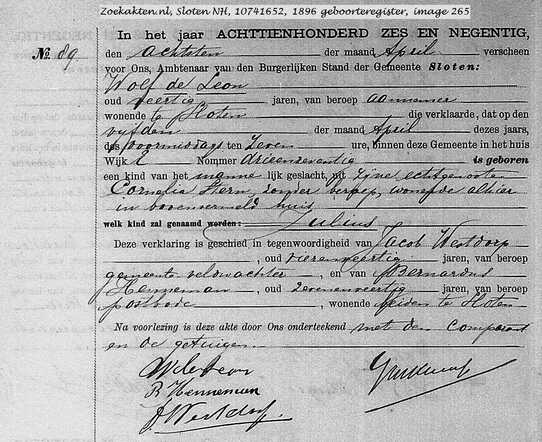 Zoekakten.nl, Sloten NH, 10741652, 1896 geboorteregister, image 265
In het jaar ACHTTIENHONDERD ZES EN NEGENTIG,
№. 89 den achtsten der maand April verscheen
voor Ons, Ambtenaar van den Burgerlijken Stand der Gemeente Sloten:
Wolf de Leon
oud veertig jaren, van beroep aannemer
wonende te Sloten die verklaarde, dat op den
vijfden der maand April dezes jaars,
des voormiddags ten zeven ure, binnen deze Gemeente in het huis
Wijk Nommer drieenzeventig is geboren
een kind van het manne lijk geslacht, uit zijne echtgenoote
Cornelia Stern, zonder beroep, wonende alhier
in bovenvermeld huis
welk kind zal genaamd worden: Julius
Deze verklaring is geschied in tegenwoordigheid van Jacob Westdorp
, oud vierenveertig jaren, van beroep
gemeente veldwachter, en van Bernardus
Henneman, oud zevenenveertig jaren, van beroep
postbode, wonende beiden te Sloten
Na voorlezing is deze akte door Ons onderteekend met den comparant
en de getuigen.
W de Leon
B Henneman
J Westdorp